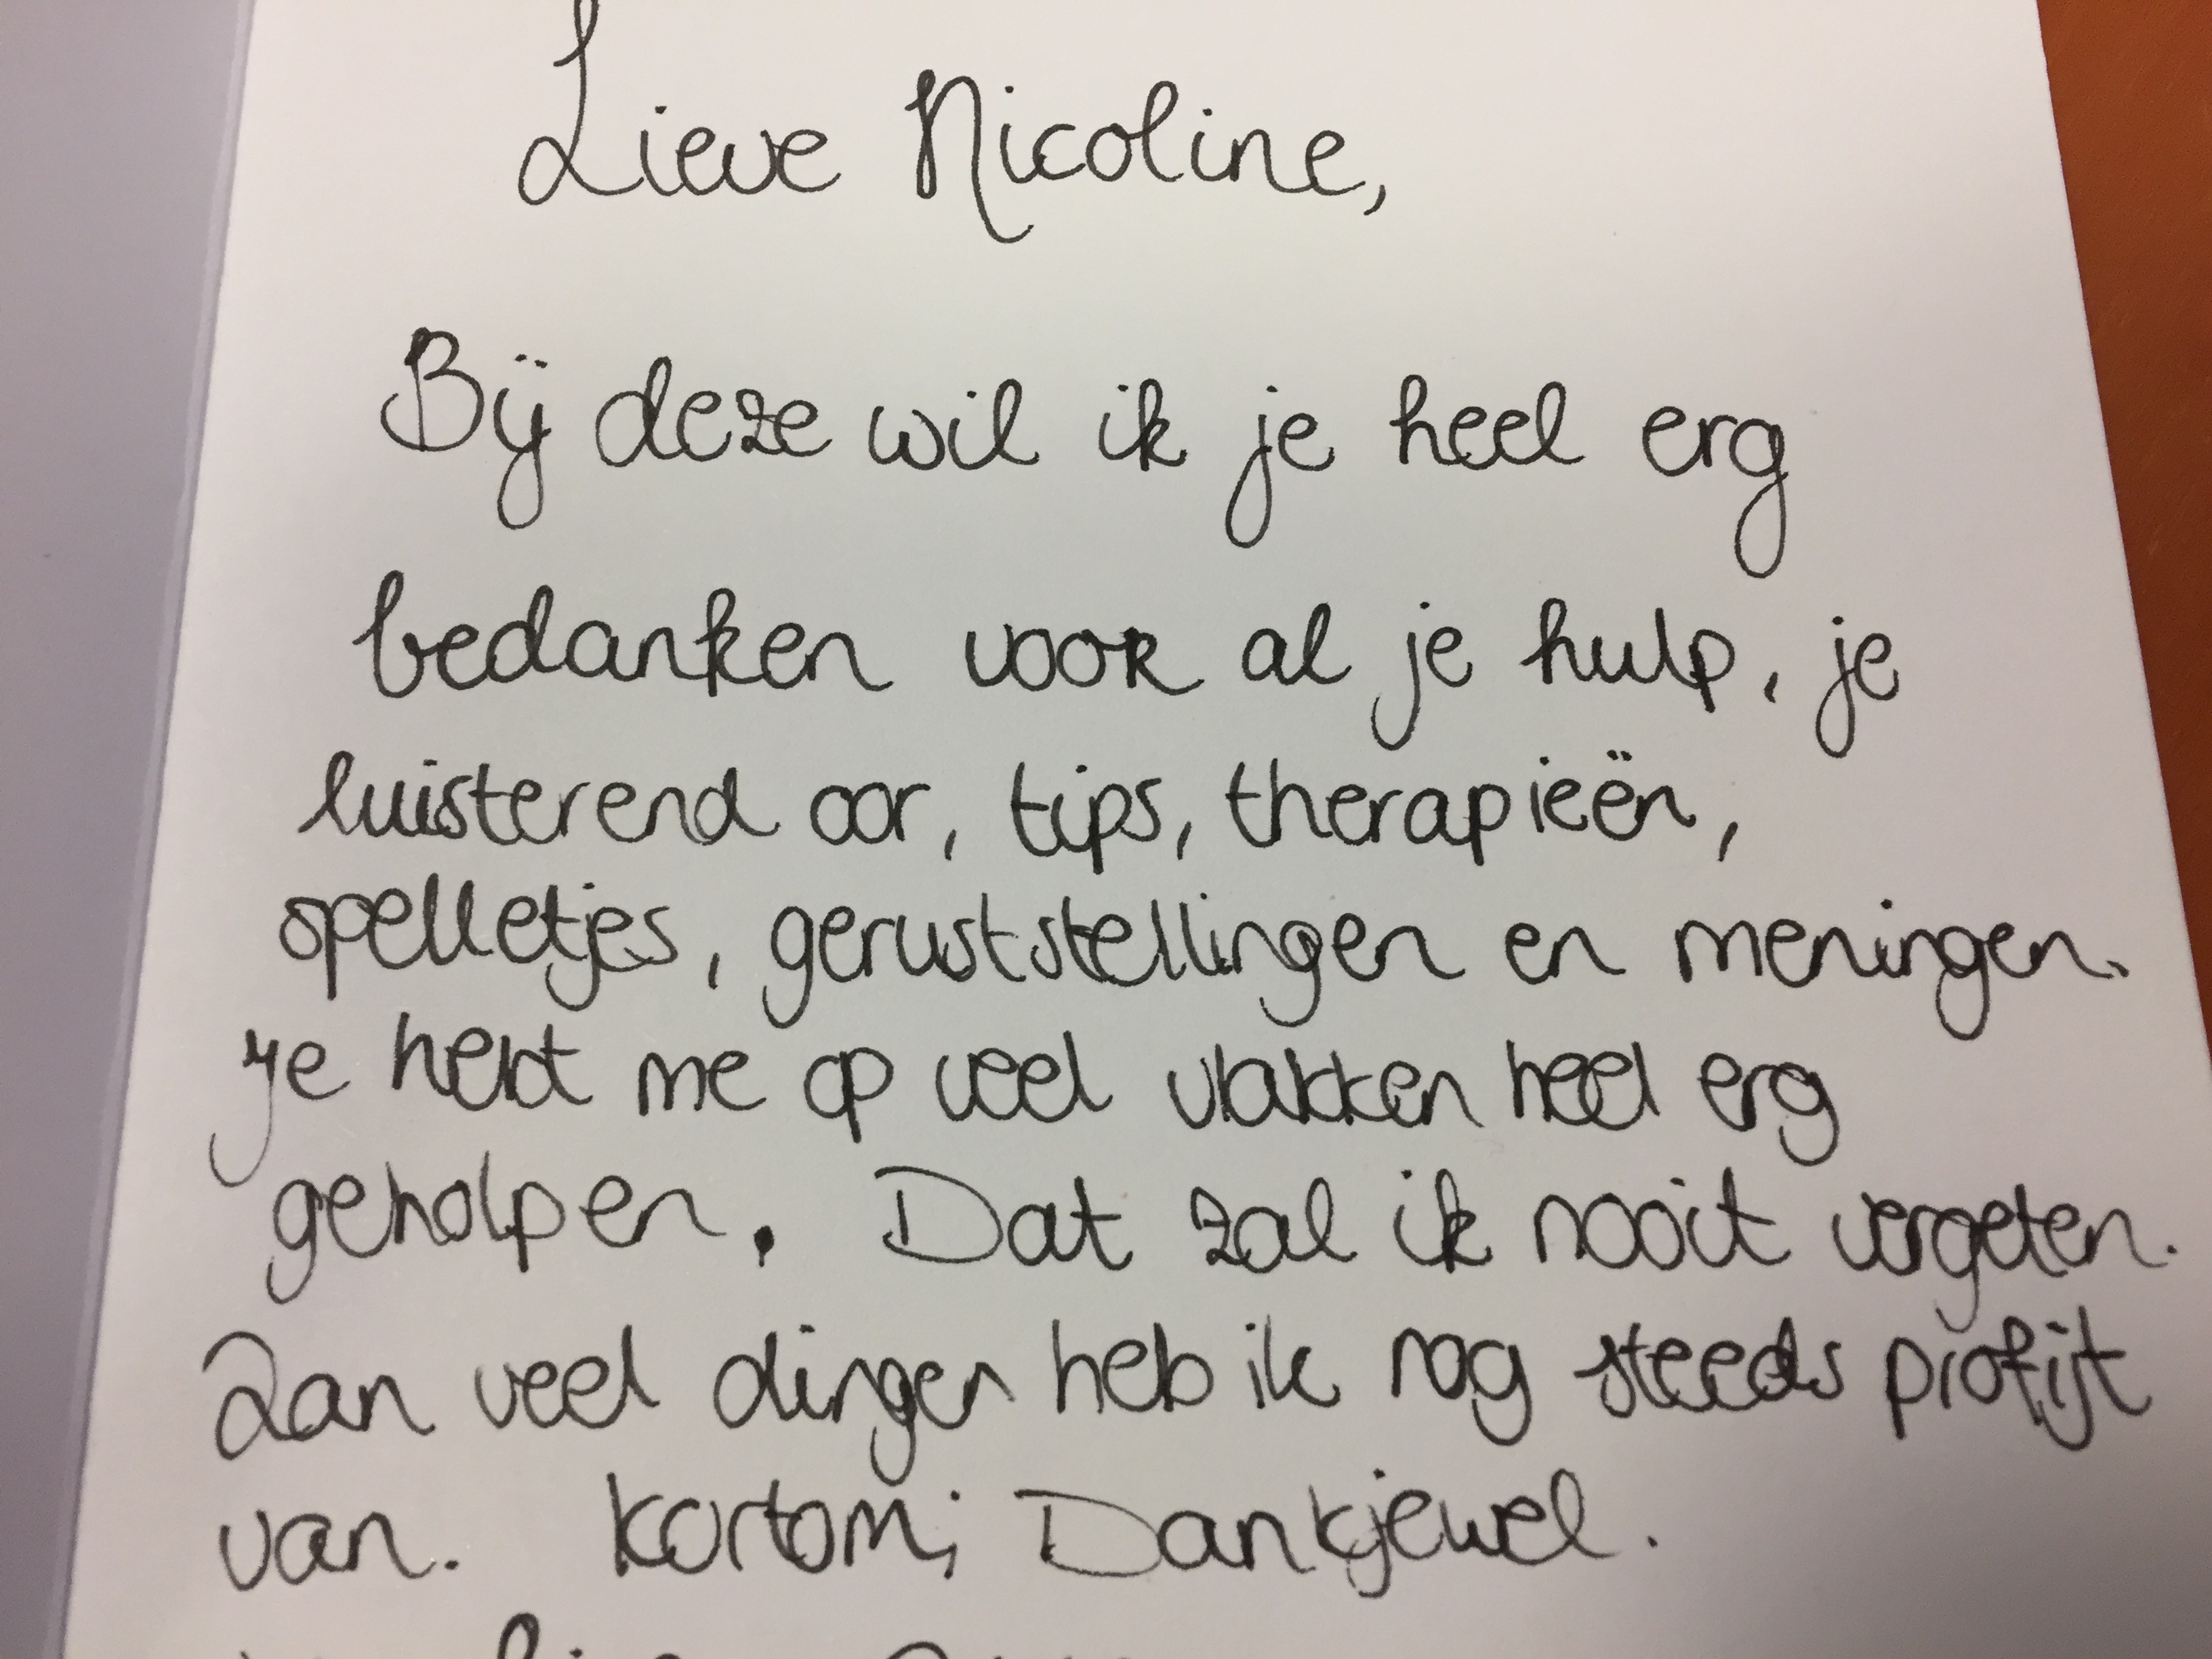 Lieve Nicoline,
Bij deze wil ik je heel erg
bedanken voor al je hulp, je
luisterend oor, tips, therapieën,
spelletjes, geruststellingen en meningen.
Je hebt me op veel vlakken heel erg
geholpen. Dat zal ik nooit vergeten.
Aan veel dingen heb ik nog steeds profijt
van. Kortom; Dankjewel.